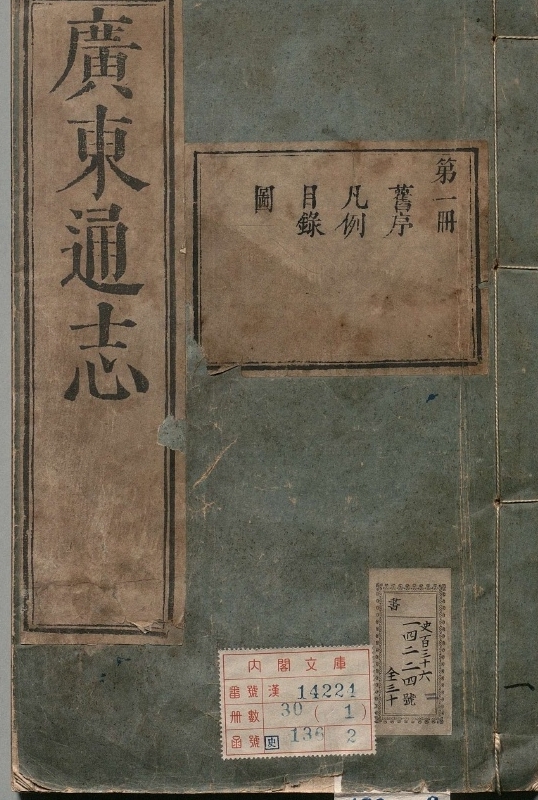 廣東通志
第一冊
舊序
凡例
目錄
圖
內閣文庫
書號 漢 14224
冊數 30 (1)
函號 史 136 2
書
史百三十六
一四二二四號
全三十
一